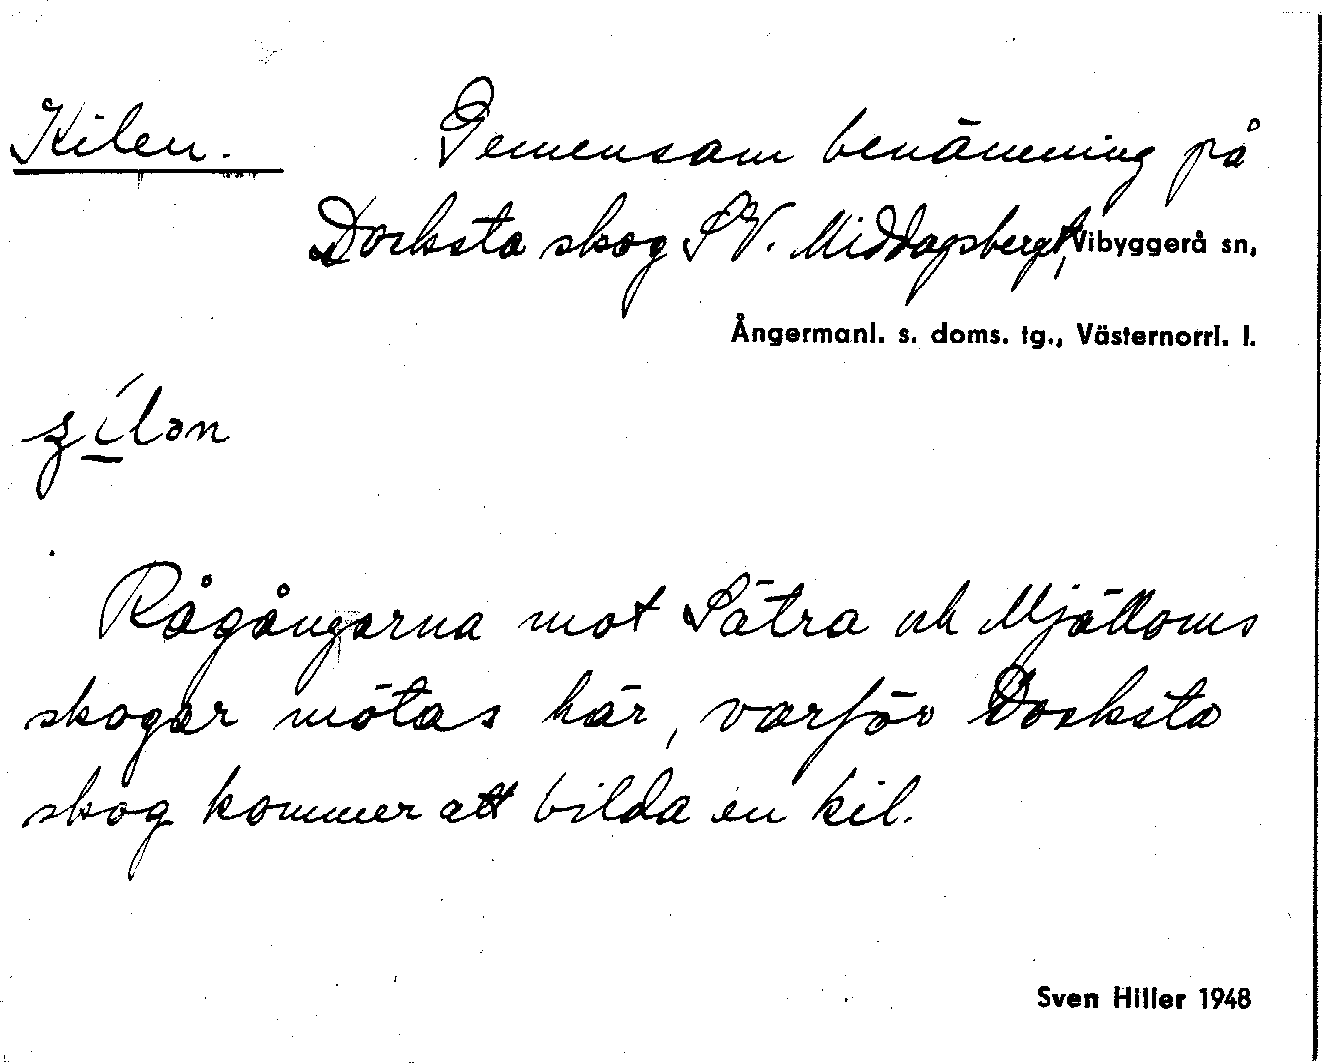 Kilen. Gemensam benämning på
Docksta skog SV. Middagsberget, Vibyggerå sn,
Ångermanl. s. doms. tg., Västernorrl. l.
Rågångarna mot Sätra och Mjälloms
skogar mötas här, varför Docksta
skog kommer att bilda en kil.
Sven Hiller 1948